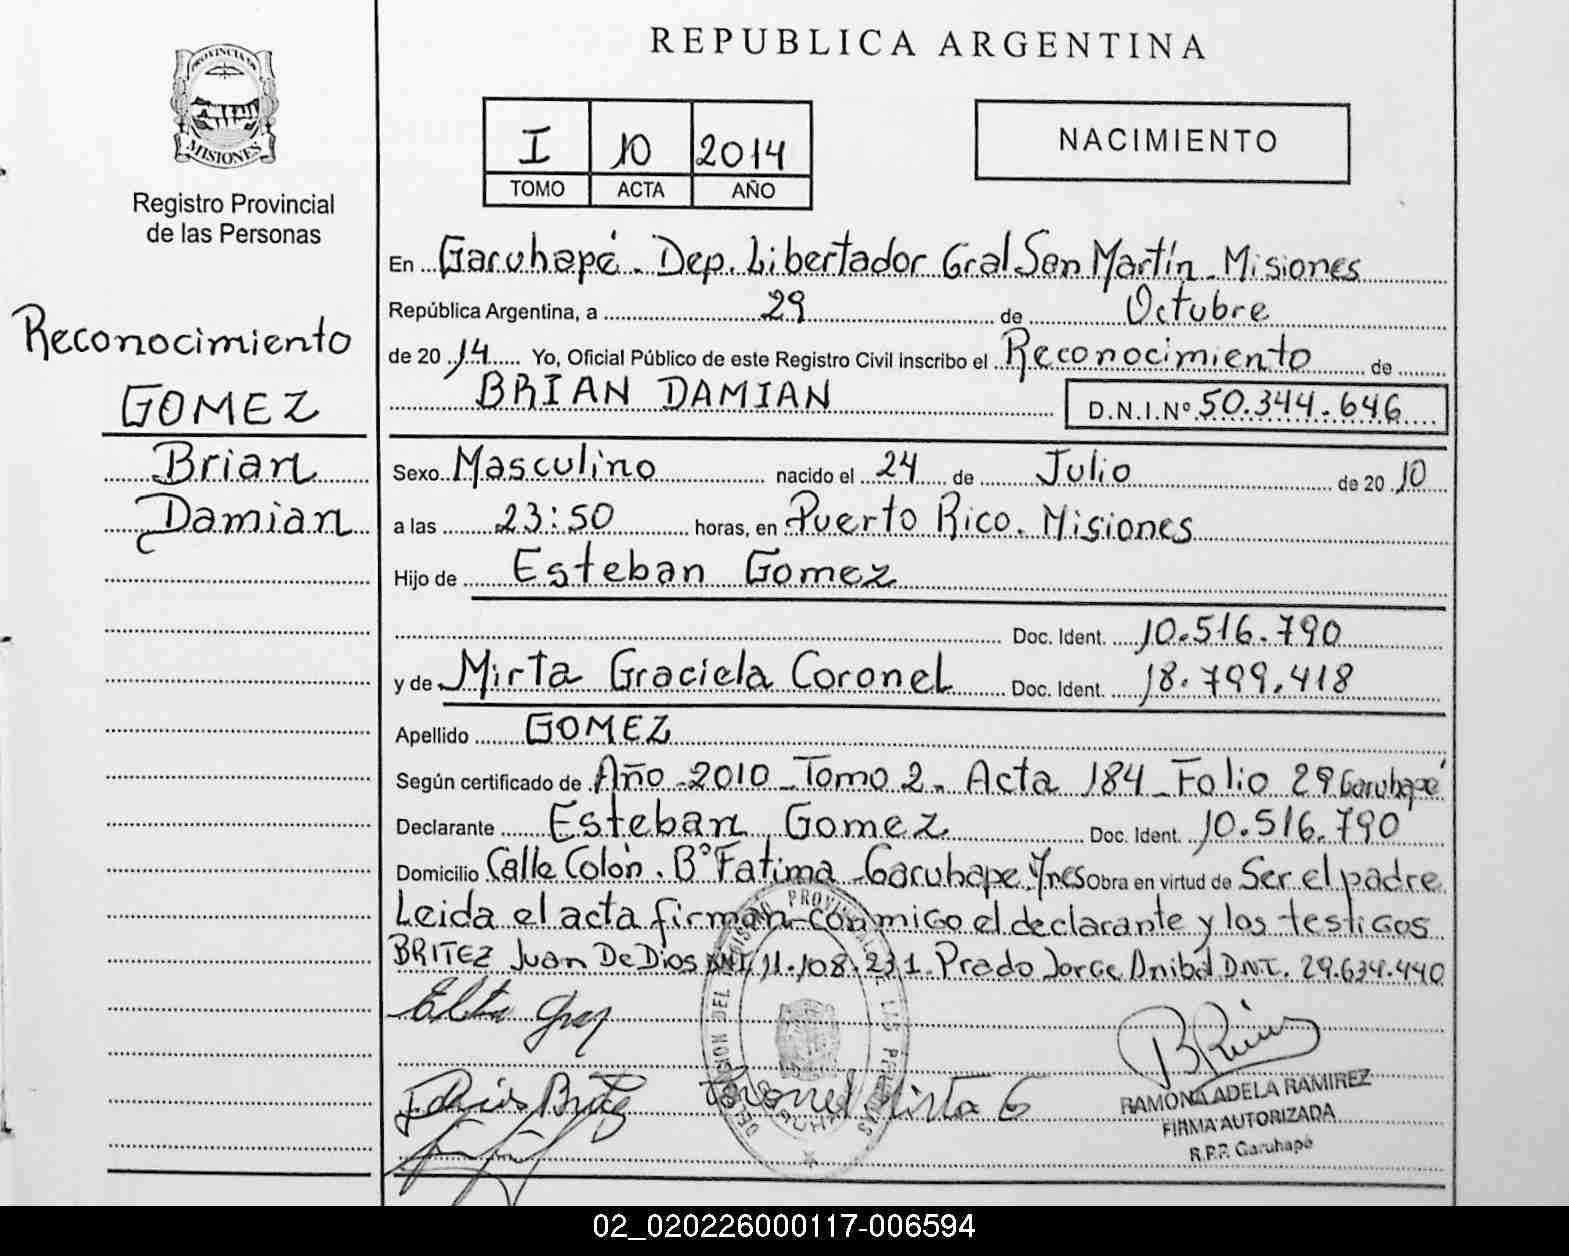 REPUBLICA ARGENTINA
PROVINCIA DE
MISIONES
Registro Provincial
de las Personas
I 10 2014
TOMO ACTA AÑO
NACIMIENTO
Reconocimiento
GOMEZ
Brian
Damian
En Garuhapé. Dep. Libertador Gral San Martín. Misiones
República Argentina, a 29 de Octubre
de 20 14 Yo, Oficial Público de este Registro Civil inscribo el Reconocimiento de
BRIAN DAMIAN D.N.I.Nº 50.344.646
Sexo Masculino nacido el 24 de Julio de 20 10
a las 23:50 horas, en Puerto Rico. Misiones
Hijo de Esteban Gomez
Doc. Ident. 10.516.790
y de Mirta Graciela Coronel Doc. Ident. 18.799.418
Apellido GOMEZ
Según certificado de Año 2010 _ Tomo 2. Acta 184 _ Folio 29 Garuhapé
Declarante Esteban Gomez Doc. Ident. 10.516.790
Domicilio Calle Colón. Bº Fatima Garuhape Mnes Obra en virtud de Ser el padre
Leida el acta firman conmigo el declarante y los testigos
BRITEZ Juan De Dios DNI. 11.108.231. Prado Jorge Anibal DNI. 29.634.440
Coronel Mirta G
RAMONA ADELA RAMIREZ
FIRMA AUTORIZADA
R.P.P. Garuhapé
02_020226000117-006594